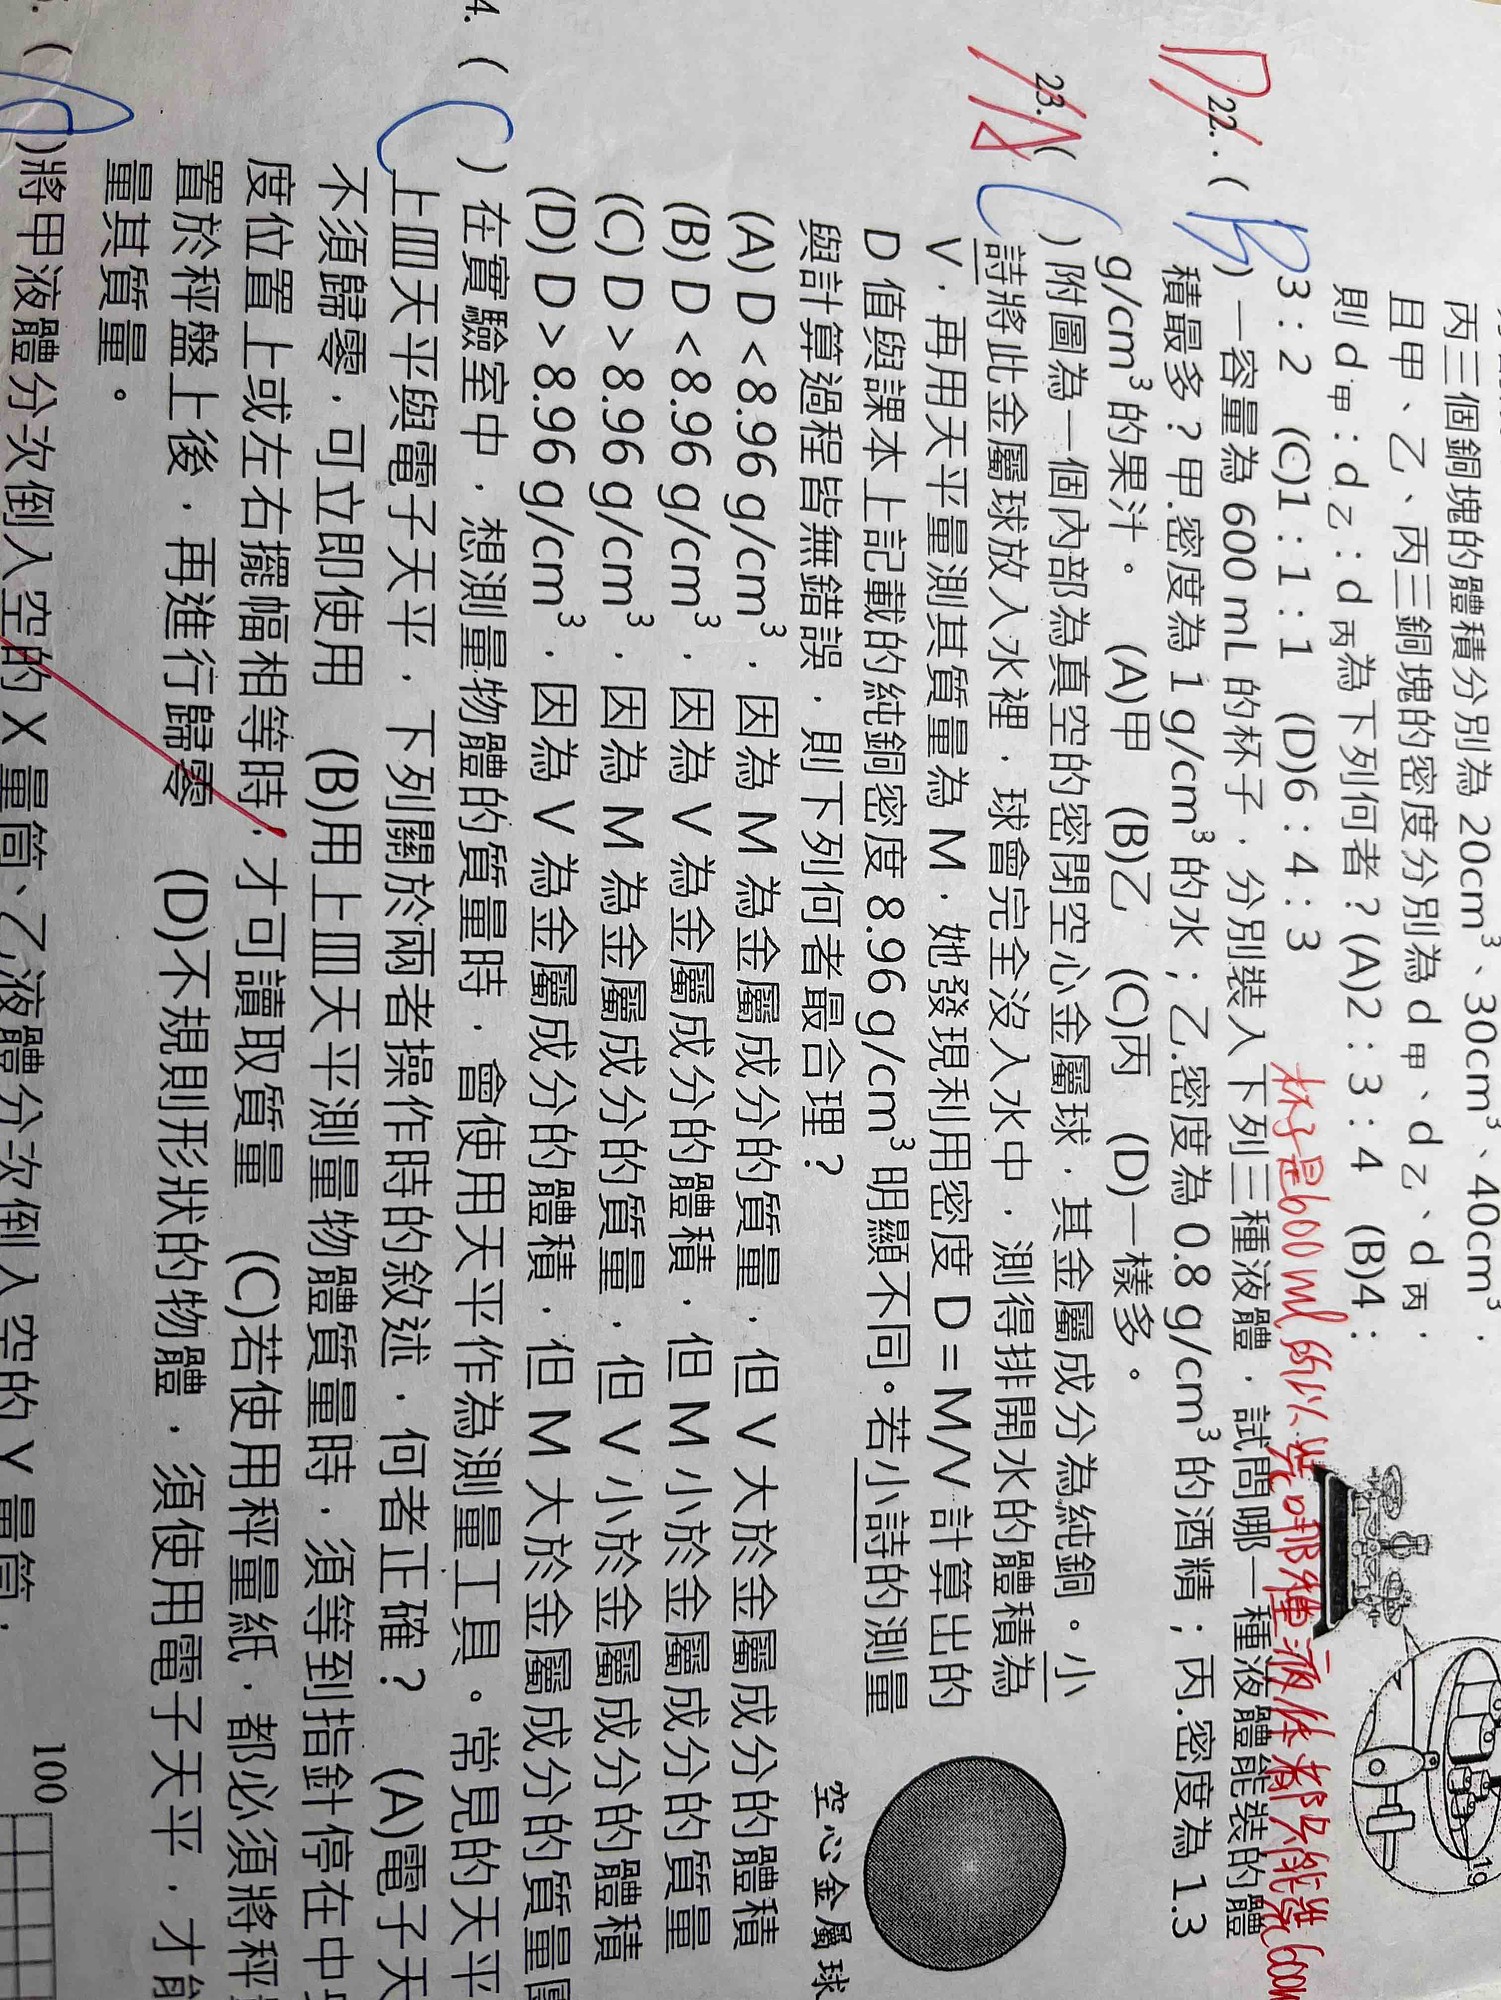 丙三個銅塊的體積分別為 20cm³、30cm³、40cm³，
且甲、乙、丙三銅塊的密度分別為 d甲、d乙、d丙，
則 d甲：d乙：d丙為下列何者？(A)2：3：4 (B)4：
3：2 (C)1：1：1 (D)6：4：3
杯子是600ml所以
D 22. ( B ) 一容量為 600 mL 的杯子，分別裝入下列三種液體，試問哪一種液體能裝的體
積最多？甲.密度為 1 g/cm³的水；乙.密度為 0.8 g/cm³的酒精；丙.密度為 1.3
g/cm³的果汁。 (A)甲 (B)乙 (C)丙 (D)一樣多。
23. ( C ) 附圖為一個內部為真空的密閉空心金屬球，其金屬成分為純銅。小
詩將此金屬球放入水裡，球會完全沒入水中，測得排開水的體積為
V，再用天平量測其質量為 M，她發現利用密度 D = M/V 計算出的
D 值與課本上記載的純銅密度 8.96 g/cm³明顯不同。若小詩的測量
與計算過程皆無錯誤，則下列何者最合理？
空心金屬球
(A) D < 8.96 g/cm³，因為 M 為金屬成分的質量，但 V 大於金屬成分的體積
(B) D < 8.96 g/cm³，因為 V 為金屬成分的體積，但 M 小於金屬成分的質量
(C) D > 8.96 g/cm³，因為 M 為金屬成分的質量，但 V 小於金屬成分的體積
(D) D > 8.96 g/cm³，因為 V 為金屬成分的體積，但 M 大於金屬成分的質量
4. ( C ) 在實驗室中，想測量物體的質量時，會使用天平作為測量工具。常見的天平
上皿天平與電子天平，下列關於兩者操作時的敘述，何者正確？ (A)電子天
不須歸零，可立即使用 (B)用上皿天平測量物體質量時，須等到指針停在中
度位置上或左右擺幅相等時，才可讀取質量 (C)若使用秤量紙，都必須將秤
置於秤盤上後，再進行歸零 (D)不規則形狀的物體，須使用電子天平，才能
量其質量。
)將甲液體分次倒入空的 X 量筒、乙液體分次倒入空的 Y 量筒，
100